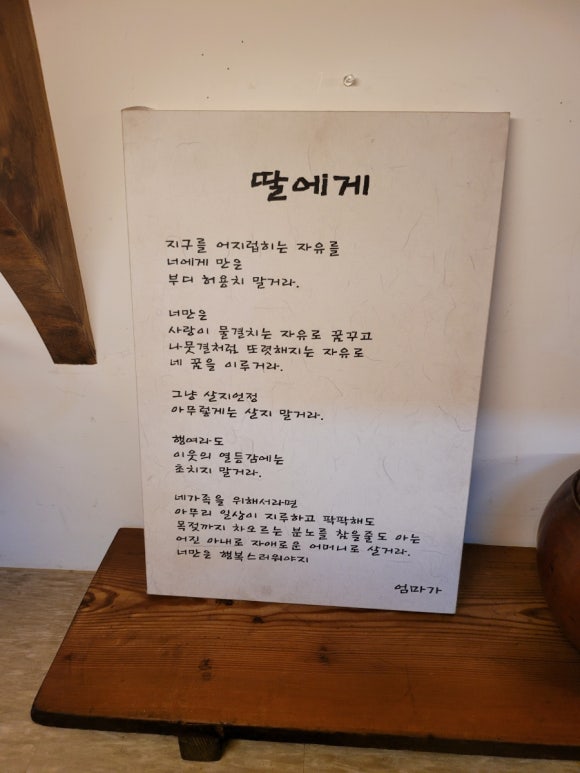 딸에게
지구를 어지럽히는 자유를
너에게 만은
부디 허용치 말거라.
너만은
사랑이 물결치는 자유로 꿈꾸고
나뭇결처럼 또렷해지는 자유로
네 꿈을 이루거라.
그냥 살지언정
아무렇게는 살지 말거라.
행여라도
이웃의 열등감에는
초치지 말거라.
네가족을 위해서라면
아무리 일상이 지루하고 팍팍해도
목젖까지 차오르는 분노를 참을줄도 아는
어진 아내로 자애로운 어머니로 살거라.
너만은 행복스러워야지
엄마가